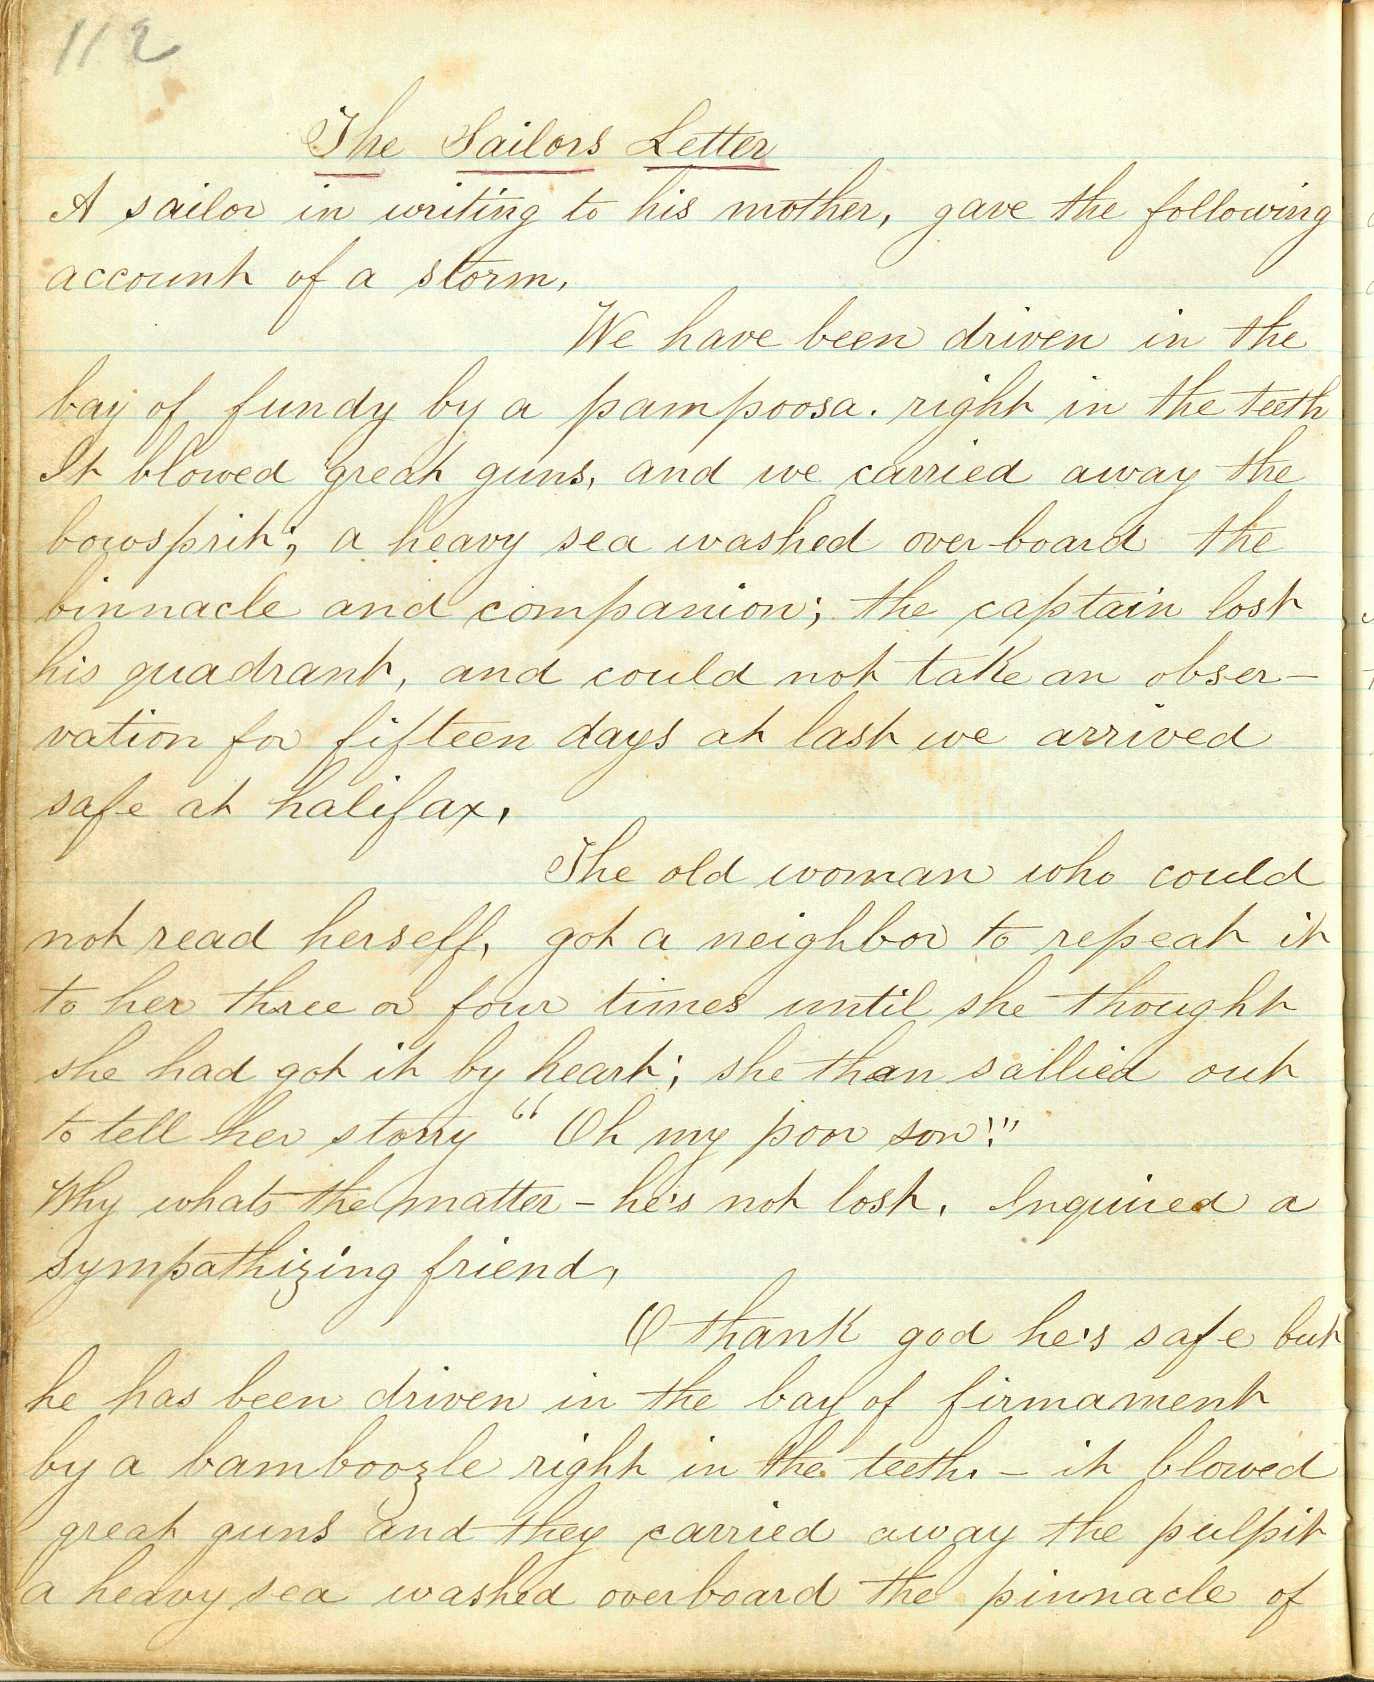 112
The Sailors Letter
A sailor in writing to his mother, gave the following
account of a storm.
We have been driven in the
bay of fundy by a pampoosa. right in the teeth
It blowed great guns, and we carried away the
bowsprit; a heavy sea washed over-board the
binnacle and companion; the captain lost
his quadrant, and could not take an obser-
vation for fifteen days at last we arrived
safe at halifax.
The old woman who could
not read herself, got a neighbor to repeat it
to her three or four times until she thought
she had got it by heart; she than sallied out
to tell her storry "Oh my poor son!"
Why whats the matter - he's not lost. Inquired a
sympathizing friend,
O thank god he's safe but
he has been driven in the bay of firmament
by a bamboozle right in the teeth. - it blowed
great guns and they carried away the pulpit
a heavy sea washed overboard the pinnacle of